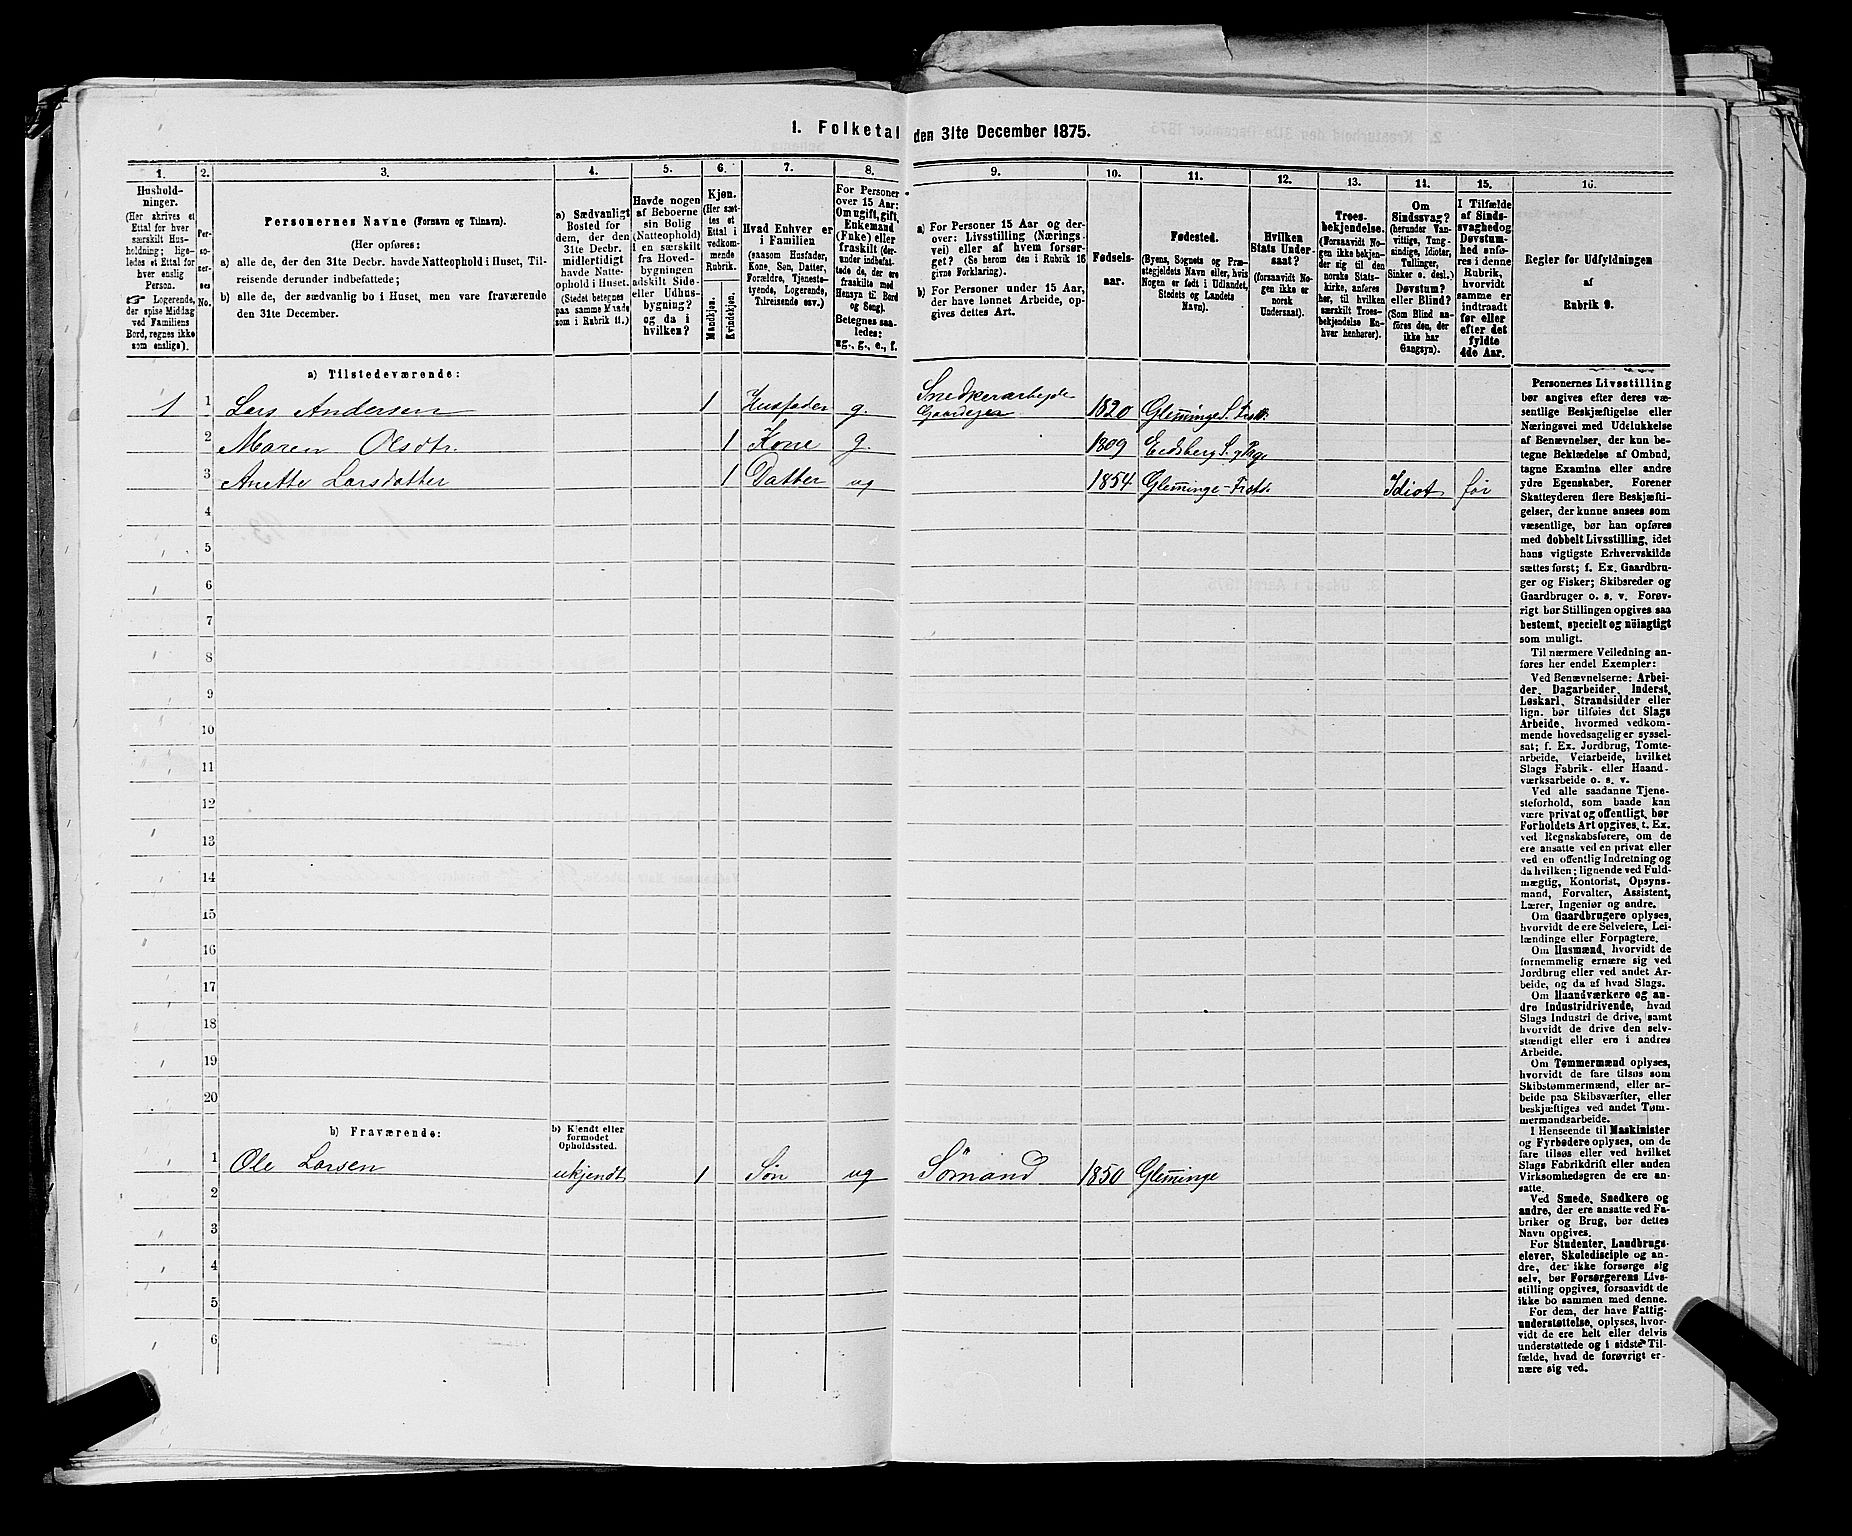 1. Folketal den 31te December 1875.
1.
Hushold-
ninger.
(Her skrives et
Ettal for hver
særskilt Hus-
holdning; lige-
ledes et Ettal for
hver enslig
Person.
Logerende,
der spise Middag
ved Familiens
Bord, regnes ikke
som enslige).
2.
Per-
so-
ner-
nes
No.
3.
Personernes Navne (Fornavn og Tilnavn).
(Her opføres:
a) alle de, der den 31te Decbr. havde Natteophold i Huset, Til-
reisende derunder indbefattede;
b) alle de, der sædvanlig bo i Huset, men vare fraværende
den 31te December.
4.
a) Sædvanligt
Bosted for
dem, der den
31te Decbr.
midlertidigt
havde Natte-
ophold i Huset.
(Stedet betegnes
paa samme Maade
som i Rubrik 11.)
5.
Havde nogen
af Beboerne
sin Bolig
(Natteophold)
i en særskilt
fra Hoved-
bygningen
adskilt Side-
eller Udhus-
bygning?
og da i
hvilken?
6.
Kjøn.
(Her sæt-
tes et
Ettal i
vedkom-
mende
Rubrik.
Mandkjøn.
Kvindekjøn.
7.
Hvad Enhver er
i Familien
(saasom Husfader,
Kone, Søn, Datter,
Forældre, Tjeneste-
tyende, Logerende,
Tilreisende osv.)
8.
For Personer
over 15 Aar:
Om ugift, gift,
Enkemand
(Enke) eller
fraskilt (der-
under indbefat-
tede de, der ere
fraskilte med
Hensyn til Bord
og Seng).
Betegnes saa-
ledes:
ug., g., e., f.
9.
a) For Personer 15 Aar og der-
over: Livsstilling (Nærings-
vei) eller af hvem forsør-
get? (Se herom den i Rubrik 16
givne Forklaring).
b) For Personer under 15 Aar,
der have lønnet Arbeide, op-
gives dettes Art.
10.
Fødsels-
aar.
11.
Fødested.
(Byens, Sognets og Præ-
stegjeldets Navn eller, hvis
Nogen er født i Udlandet,
Stedets og Landets
Navn).
12.
Hvilken
Stats Under-
saat?
(forsaavidt No-
gen ikke er
norsk
Undersaat).
13.
Troes-
bekjendelse.
(Forsaavidt No-
gen ikke bekjen-
der sig til den
norske Stats-
kirke, anføres
her, til hvilken
særskilt Troes-
bekjendelse En-
hver henhører).
14.
Om
Sindssvag?
(herunder Van-
vittige, Tung-
sindige, Idioter,
Tullinger,
Sinker o. desl.)
Døvstum?
eller Blind?
(Som Blind an-
føres den, der
ikke har
Gangsyn).
15.
I Tilfælde
af Sinds-
svaghed og
Døvstum-
hed anfø-
res i denne
Rubrik,
hvorvidt
samme er
indtraadt
før eller
efter det
fyldte
4de Aar.
16.
Regler for Udfyldningen
af
Rubrik 9.
a) Tilstedeværende:
1 1 Lars Andersen 1 Husfader g. Snedkerarbejde Gaardejer 1820 Glemminge S.
2 Maren Olsdtr. 1 Kone g. 1809 Eidsberg S. Pgj.
3 Anette Larsdatter 1 Datter ug 1854 Glemminge Idiot før
4
5
6
7
8
9
10
11
12
13
14
15
16
17
18
19
20
b) Fraværende:
b) Kjendt eller
formodet
Opholdssted.
1 Ole Larsen ukjendt 1 Søn ug Sømand 1850 Glemminge
2
3
4
5
6
Personernes Livsstilling
bør angives efter deres væ-
sentlige Beskjæftigelse eller
Næringsvei med Udelukkelse
af Benævnelser, der kun be-
tegne Beklædelse af Ombud,
tagne Examina eller andre
ydre Egenskaber. Forener
Skatteyderen flere Beskjæfti-
gelser, der kunne ansees som
væsentlige, bør han opføres
med dobbelt Livsstilling, idet
hans vigtigste Erhvervskilde
sættes først; f. Ex. Gaardbru-
ger og Fisker; Skibsreder og
Gaardbruger o. s. v. Forøv-
rigt bør Stillingen opgives saa
bestemt, specielt og nöiagtigt
som muligt.
Til nærmere Veiledning an-
føres her endel Exempler:
Ved Benævnelserne: Arbei-
der, Dagarbeider, Inderst,
Løskarl, Strandsidder eller
lign. bør tilføies det Slags
Arbeide, hvormed vedkom-
mende hovedsagelig er syssel-
sat; f. Ex. Jordbrug, Tomte-
arbeide, Veiarbeide, hvilket
Slags Fabrik- eller Haand-
værksarbeide o. s. v.
Ved alle saadanne Tjene-
steforhold, som baade kan
være privat og offentligt, bør
Forholdets Art opgives, t. Ex.
ved Regnskabsførere, om de
ere ansatte ved en privat eller
ved en offentlig Indretning og
da hvilken; lignende ved Fuld-
mægtig, Kontorist, Opsyns-
mand, Forvalter, Assistent,
Lærer, Ingeniør og andre.
Om Gaardbrugere oplyses,
hvorvidt de ere Selveiere, Lei-
lændinge eller Forpagtere.
Om Husmænd, hvorvidt de
fornemmelig ernære sig ved
Jordbrug eller ved andet Ar-
beide, og da af hvad Slags.
Om Haandværkere og an-
dre Industridrivende, hvad
Slags Industri de drive, samt
hvorvidt de drive den selv-
stændigt eller ere i andres
Arbeide.
Om Tømmermænd oplyses,
hvorvidt de fare tilsøs som
Skibstømmermænd, eller ar-
beide paa Skibsværfter, eller
beskjæftiges ved andet Tøm-
mermandsarbeide.
I Henseende til Maskinister
og Fyrbødere oplyses, om de
fare tilsøs eller ved hvilket
Slags Fabrikdrift eller anden
Virksomhedsgren de ere an-
satte.
Ved Smede, Snedkere og
andre, der ere ansatte ved Fa-
briker og Brug, bør dettes
Navn opgives.
For Studenter, Landbrugs-
elever, Skoledisciple og an-
dre, der ikke forsørge sig
selv, bør Forsørgerens Livs-
stilling opgives, forsaavidt de
ikke bo sammen med denne.
For dem, der have Fattig-
understøttelse, oplyses, hvor-
vidt de ere helt eller delvis
understøttede og i sidste Til-
fælde, hvad de forøvrigt er-
nære sig ved.